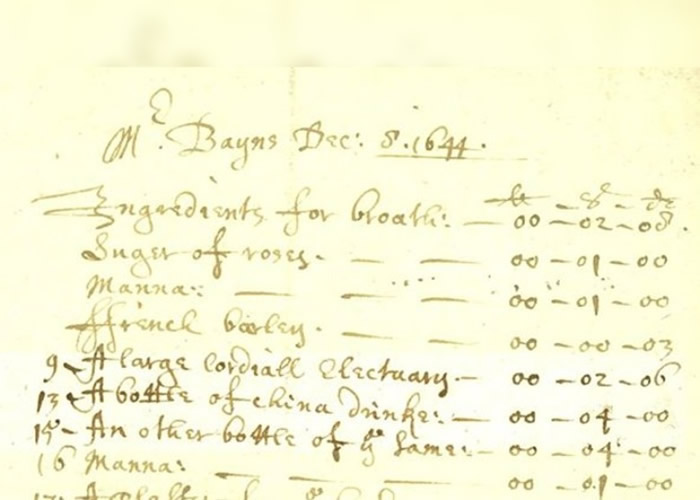 Mr. Bayns Dec: 8. 1644.
li – s – d
Ingredients for broath: — 00 – 02 – 08.
Suger of roses. — — 00 – 01 – 00
Manna: — — — 00 – 01 – 00
ffrench barley. — — 00 – 00 – 03
9 – A large Cordiall Electuary. — 00 – 02 – 06
13 – A bottle of china drinke: — 00 – 04 – 00
15 – An other bottle of ye same: — 00 – 04 – 00
16 Manna: — — — 00 – 01 – 00